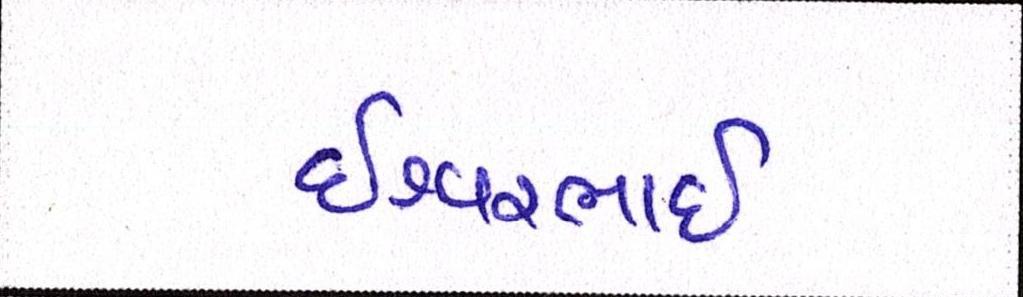 ઈશ્વરભાઈ